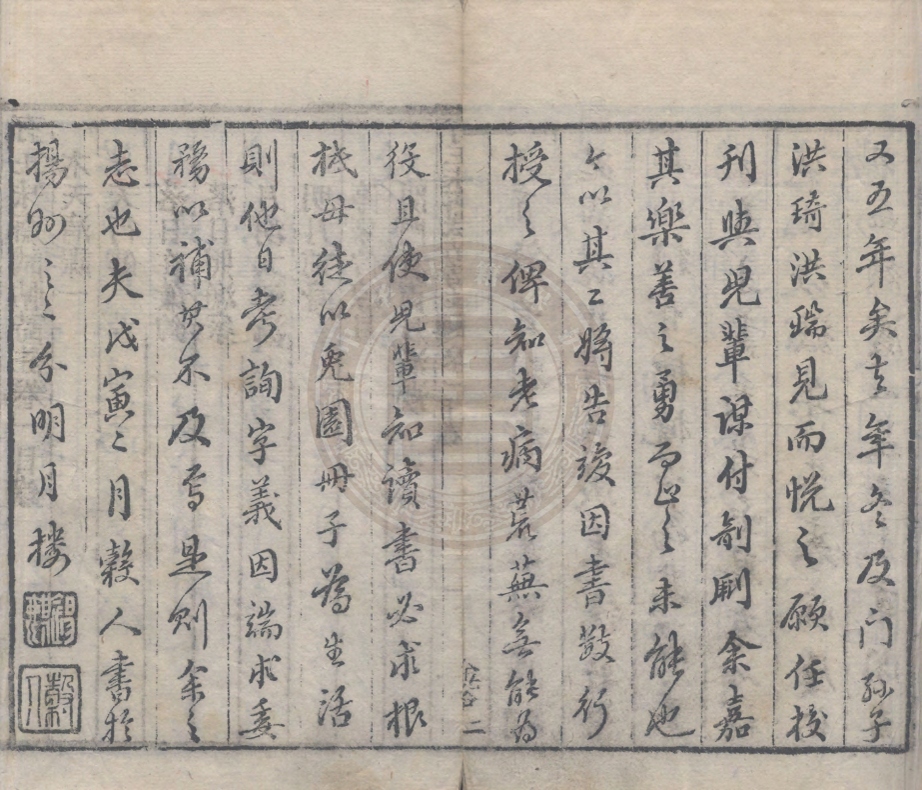 又五年矣去年冬及门孙子
洪琦洪瑞見而悅之願任校
刊與兒輩謀付剞劂余嘉
其樂善之勇而止之未能也
今以其工將告竣因書數行
授之俾知老病荒蕪無能為
役且使兒輩知讀書必求根
柢毋徒以兎園冊子為生活
則他日考詢字義因端求委
務以補其不及焉是則余之
志也夫戊寅二月穀人書於
揚州之二分明月樓